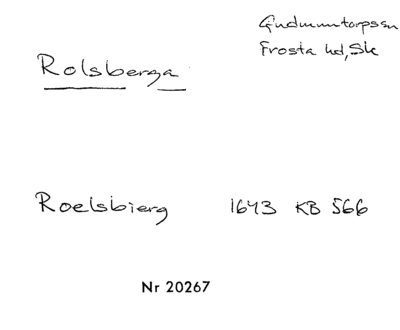 Gudmuntorpssn
Frosta hd, Sk
Rolsberga
Roelsbierg 1643 KB 566
Nr 20267